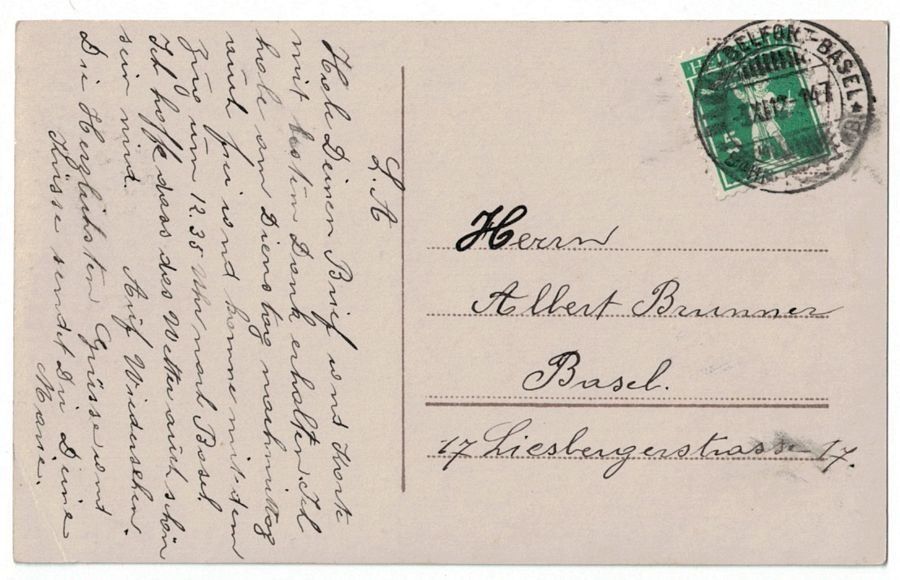 L. A
Habe Deinen Brief und Karte
mit bestem Dank erhalten. Ich
habe am Dienstag nachmittag
frei und komme mit dem
Zug um 12.35 Uhr nach Basel.
Ich hoffe dass das Wetter auch schön
sein wird. Auf Wiedersehen.
Die Herzlichsten Grüsse und
Küsse sendet Dir Deine
BELFORT-BASEL
HEL
5
Herrn
Albert Brunner
Basel.
17 Liesbergerstrasse 17.